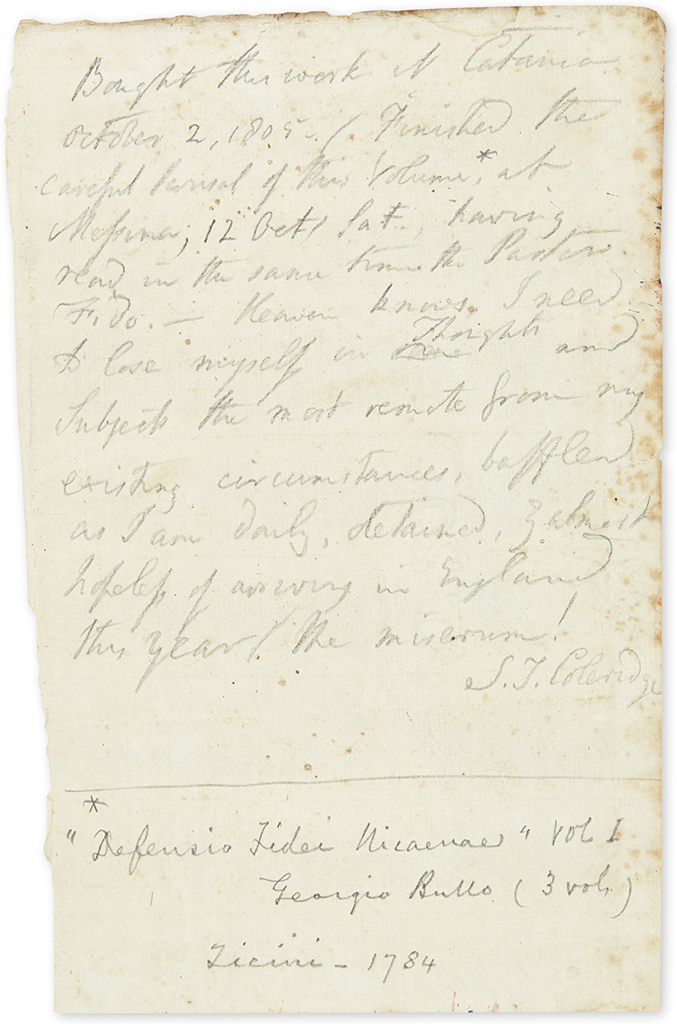 Bought this work at Catania
October 2, 1805. / Finished the
careful Perusal of this Volume,* at
Messina, 12 Oct/ Sat., having
read in the same time the Pastor
Fido. — Heaven knows I need
to lose myself in Thoughts and
Subjects the most remote from my
existing circumstances, baffled
as I am daily, detained, & almost
hopeless of arriving in England
this year / Me miserum!
S. T. Coleridge
*
"Defensio Fidei Nicaenae" Vol I
Georgio Bullo (3 vols)
Ticini - 1784